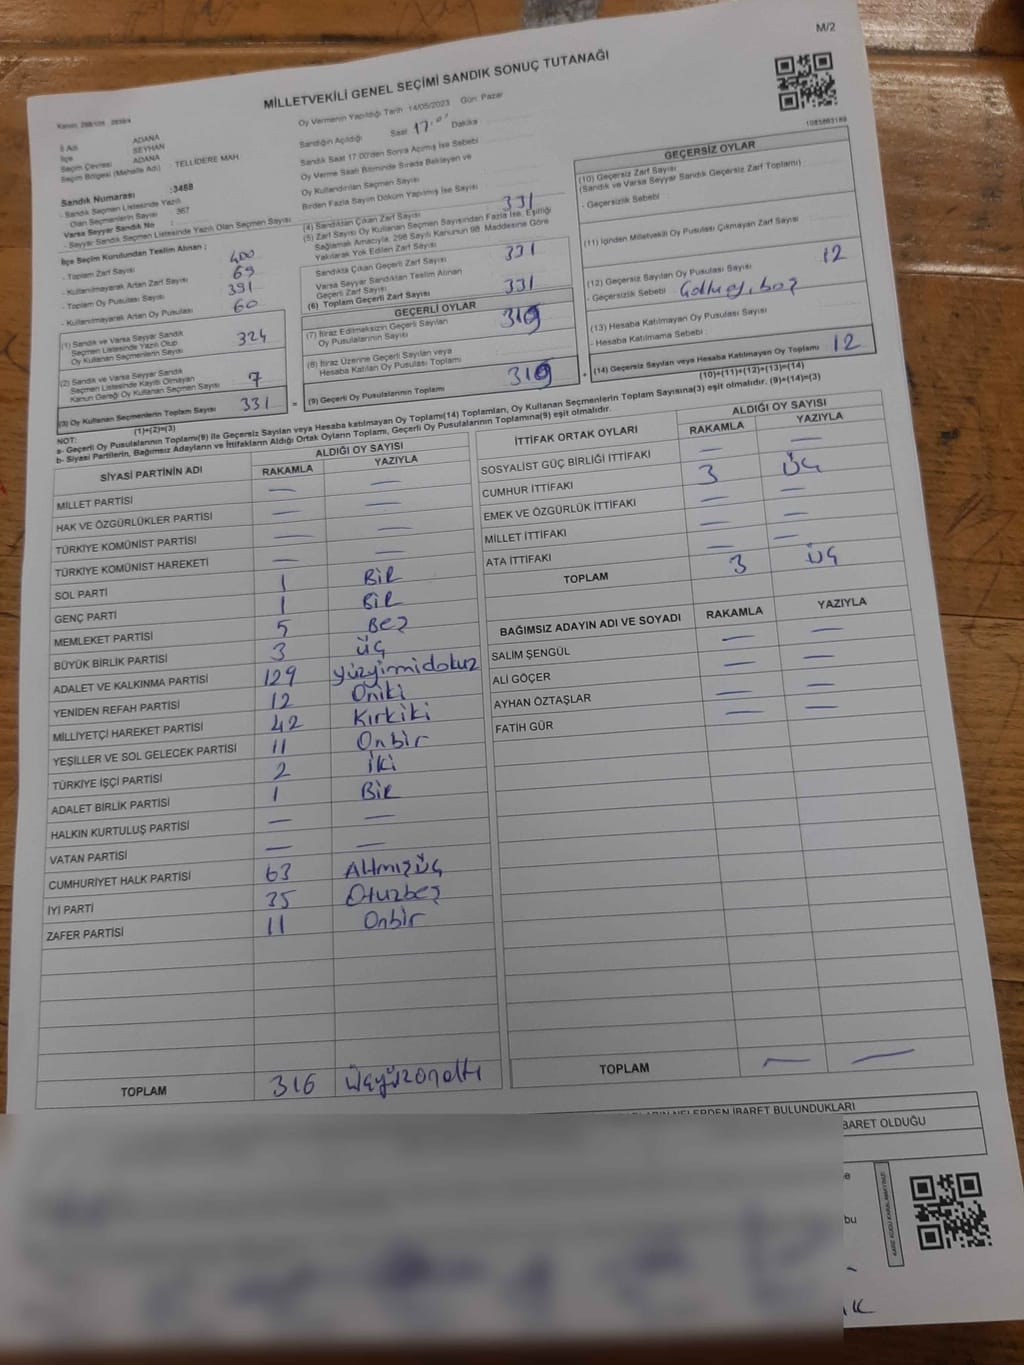 M/2
MİLLETVEKİLİ GENEL SEÇİMİ SANDIK SONUÇ TUTANAĞI
1083863189
İl Adı ADANA
İlçe SEYHAN
Seçim Çevresi ADANA
Seçim Bölgesi (Mahalle Adı) : TELLİDERE MAH
Sandık Numarası :3468
- Sandık Seçmen Listesinde Yazılı
Olan Seçmenlerin Sayısı : 367
Varsa Seyyar Sandık No
- Seyyar Sandık Seçmen Listesinde Yazılı Olan Seçmen Sayısı
İlçe Seçim Kurulundan Teslim Alınan ;
- Toplam Zarf Sayısı 400
- Kullanılmayarak Artan Zarf Sayısı 69
- Toplam Oy Pusulası Sayısı 391
- Kullanılmayarak Artan Oy Pusulası 60
(1) Sandık ve Varsa Seyyar Sandık
Seçmen Listesinde Yazılı Olup
Oy Kullanan Seçmenlerin Sayısı 324
(2) Sandık ve Varsa Seyyar Sandık
Seçmen Listesinde Kayıtlı Olmayan
Kanun Gereği Oy Kullanan Seçmen Sayısı 7
(3) Oy Kullanan Seçmenlerin Toplam Sayısı 331
(1)+(2)=(3)
Oy Vermenin Yapıldığı Tarih :14/05/2023 Gün: Pazar
Sandığın Açıldığı Saat 17.00 Dakika
Sandık Saat 17:00'den Sonra Açılmış İse Sebebi
Oy Verme Saati Bitiminde Sırada Bekleyen ve
Oy Kullandırılan Seçmen Sayısı
Birden Fazla Sayım Döküm Yapılmış İse Sayısı
(4) Sandıktan Çıkan Zarf Sayısı 331
(5) Zarf Sayısı Oy Kullanan Seçmen Sayısından Fazla İse, Eşitliği
Sağlamak Amacıyla, 298 Sayılı Kanunun 98. Maddesine Göre
Yakılarak Yok Edilen Zarf Sayısı
Sandıkta Çıkan Geçerli Zarf Sayısı 331
Varsa Seyyar Sandıktan Teslim Alınan
Geçerli Zarf Sayısı
(6) Toplam Geçerli Zarf Sayısı 331
GEÇERLİ OYLAR
(7) İtiraz Edilmeksizin Geçerli Sayılan
Oy Pusulalarının Sayısı 319
(8) İtiraz Üzerine Geçerli Sayılan veya
Hesaba Katılan Oy Pusulası Toplamı
= (9) Geçerli Oy Pusulalarının Toplamı 319
GEÇERSİZ OYLAR
(10) Geçersiz Zarf Sayısı
(Sandık ve Varsa Seyyar Sandık Geçersiz Zarf Toplamı)
- Geçersizlik Sebebi :
(11) İçinden Milletvekili Oy Pusulası Çıkmayan Zarf Sayısı
(12) Geçersiz Sayılan Oy Pusulası Sayısı 12
- Geçersizlik Sebebi
(13) Hesaba Katılmayan Oy Pusulası Sayısı
- Hesaba Katılmama Sebebi :
+ (14) Geçersiz Sayılan veya Hesaba Katılmayan Oy Toplamı 12
(10)+(11)+(12)+(13)=(14)
NOT:
a- Geçerli Oy Pusulalarının Toplamı(9) ile Geçersiz Sayılan veya Hesaba katılmayan Oy Toplamı(14) Toplamları, Oy Kullanan Seçmenlerin Toplam Sayısına(3) eşit olmalıdır. (9)+(14)=(3)
b- Siyasi Partilerin, Bağımsız Adayların ve İttifakların Aldığı Ortak Oyların Toplamı, Geçerli Oy Pusulalarının Toplamına(9) eşit olmalıdır.
SİYASİ PARTİNİN ADI ALDIĞI OY SAYISI
RAKAMLA YAZIYLA
MİLLET PARTİSI — —
HAK VE ÖZGÜRLÜKLER PARTİSİ — —
TÜRKİYE KOMÜNİST PARTİSİ — —
TÜRKİYE KOMÜNİST HAREKETİ — —
SOL PARTİ 1 BİR
GENÇ PARTİ 1 BİR
MEMLEKET PARTİSİ 5 BEŞ
BÜYÜK BİRLİK PARTİSİ 3 ÜÇ
ADALET VE KALKINMA PARTİSİ 129 yüzyirmidokuz
YENİDEN REFAH PARTİSİ 12 Oniki
MİLLİYETÇİ HAREKET PARTİSİ 42 Kırkiki
YEŞİLLER VE SOL GELECEK PARTİSİ 11 Onbir
TÜRKİYE İŞÇİ PARTİSİ 2 İki
ADALET BİRLİK PARTİSİ 1 BİR
HALKIN KURTULUŞ PARTİSİ — —
VATAN PARTİSİ — —
CUMHURİYET HALK PARTİSİ 63 Altmışüç
İYİ PARTİ 35 Otuzbeş
ZAFER PARTİSİ 11 Onbir
TOPLAM 316 üçyüzonaltı
İTTİFAK ORTAK OYLARI ALDIĞI OY SAYISI
RAKAMLA YAZIYLA
SOSYALİST GÜÇ BİRLİĞİ İTTİFAKI — —
CUMHUR İTTİFAKI 3 ÜÇ
EMEK VE ÖZGÜRLÜK İTTİFAKI — —
MİLLET İTTİFAKI — —
ATA İTTİFAKI — —
TOPLAM 3 ÜÇ
BAĞIMSIZ ADAYIN ADI VE SOYADI RAKAMLA YAZIYLA
SALİM ŞENGÜL — —
ALİ GÖÇER — —
AYHAN ÖZTAŞLAR — —
FATİH GÜR — —
TOPLAM — —
NELERDEN İBARET BULUNDUKLARI
İBARET OLDUĞU
bu
KARE KODU KARALAMAYINIZ!